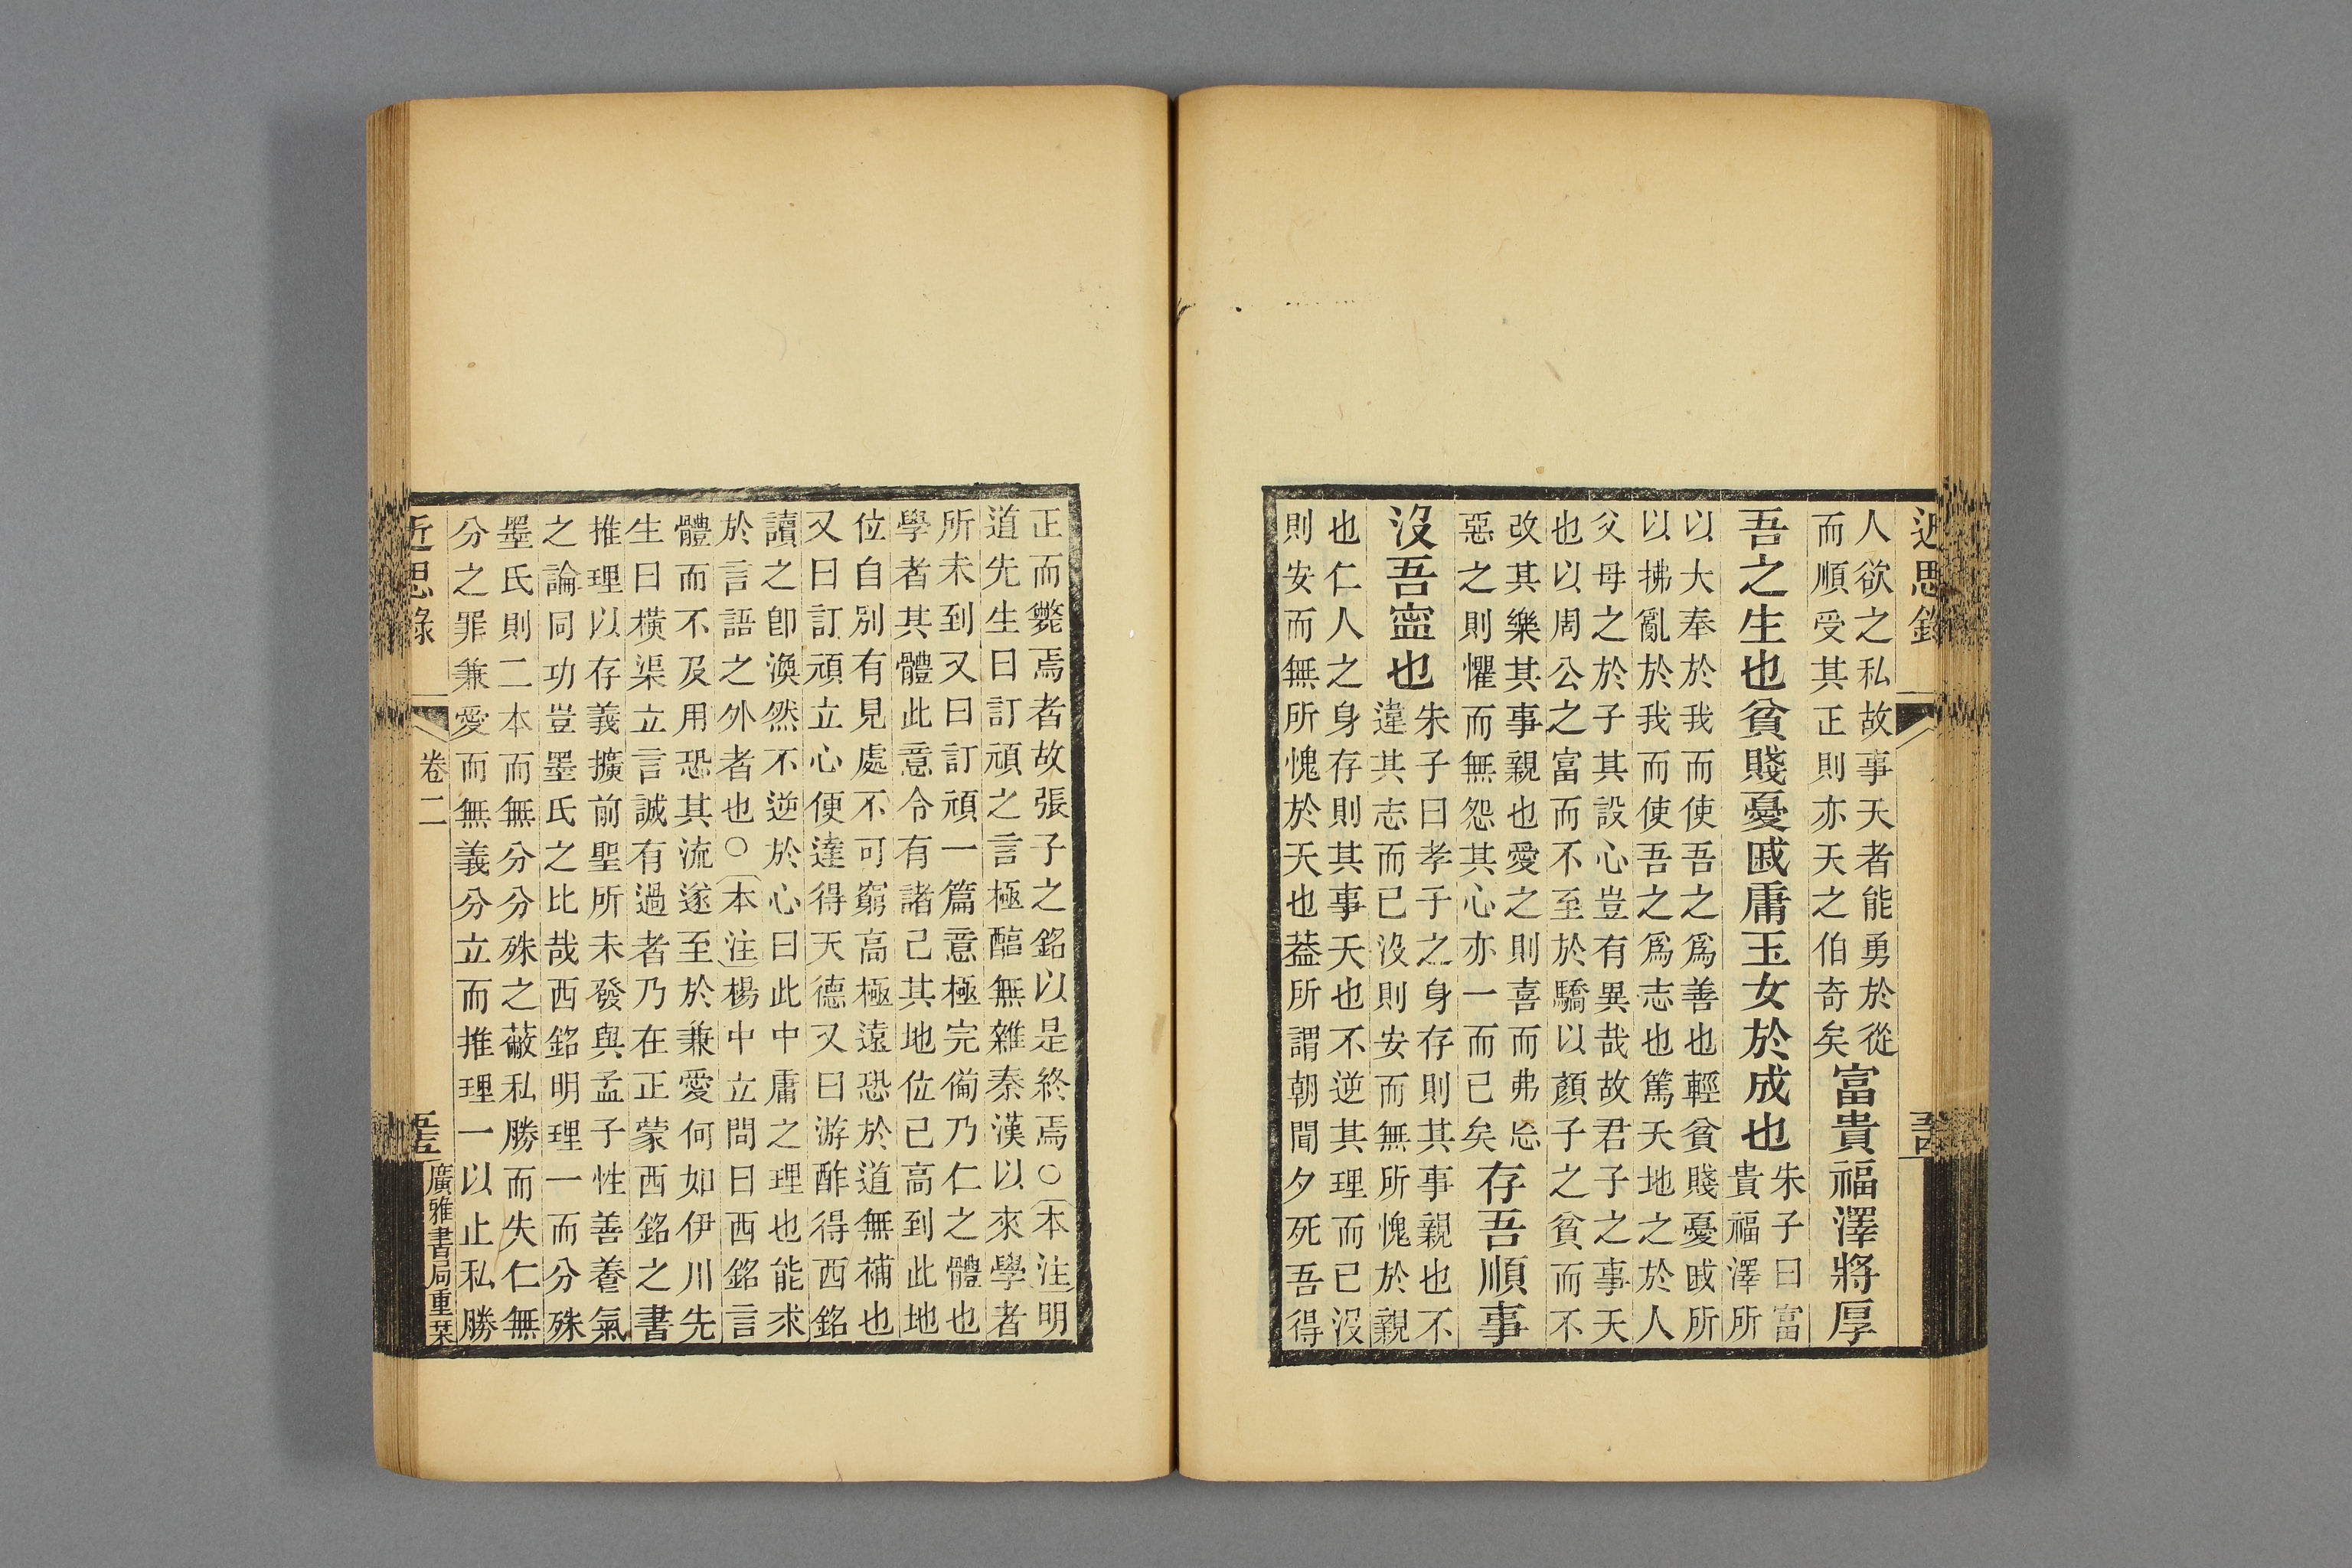 近思錄
人欲之私故事天者能勇於從
而順受其正則亦天之伯奇矣
富貴福澤將厚
吾之生也貧賤憂戚庸玉女於成也
朱子曰富
貴福澤所
以大奉於我而使吾之爲善也輕貧賤憂戚所
以拂亂於我而使吾之爲志也篤天地之於人
父母之於子其設心豈有異哉故君子之事天
也以周公之富而不至於驕以顏子之貧而不
改其樂其事親也愛之則喜而弗忘
惡之則懼而無怨其心亦一而已矣
存吾順事
沒吾寍也
朱子曰孝子之身存則其事親也不
違其志而已沒則安而無所愧於親
也仁人之身存則其事天也不逆其理而已沒
則安而無所愧於天也葢所謂朝聞夕死吾得
正而斃焉者故張子之銘以是終焉○本注明
道先生曰訂頑之言極醇無雜秦漢以來學者
所未到又曰訂頑一篇意極完備乃仁之體也
學者其體此意令有諸己其地位己高到此地
位自別有見處不可窮高極遠恐於道無補也
又曰訂頑立心便達得天德又曰游酢得西銘
讀之卽渙然不逆於心曰此中庸之理也能求
於言語之外者也○本注楊中立問曰西銘言
體而不及用恐其流遂至於兼愛何如伊川先
生曰橫渠立言誠有過者乃在正蒙西銘之書
推理以存義擴前聖所未發與孟子性善養氣
之論同功豈墨氏之比哉西銘明理一而分殊
墨氏則二本而無分分殊之蔽私勝而失仁無
分之罪兼愛而無義分立而推理一以止私勝
近思錄
卷二
廣雅書局重栞